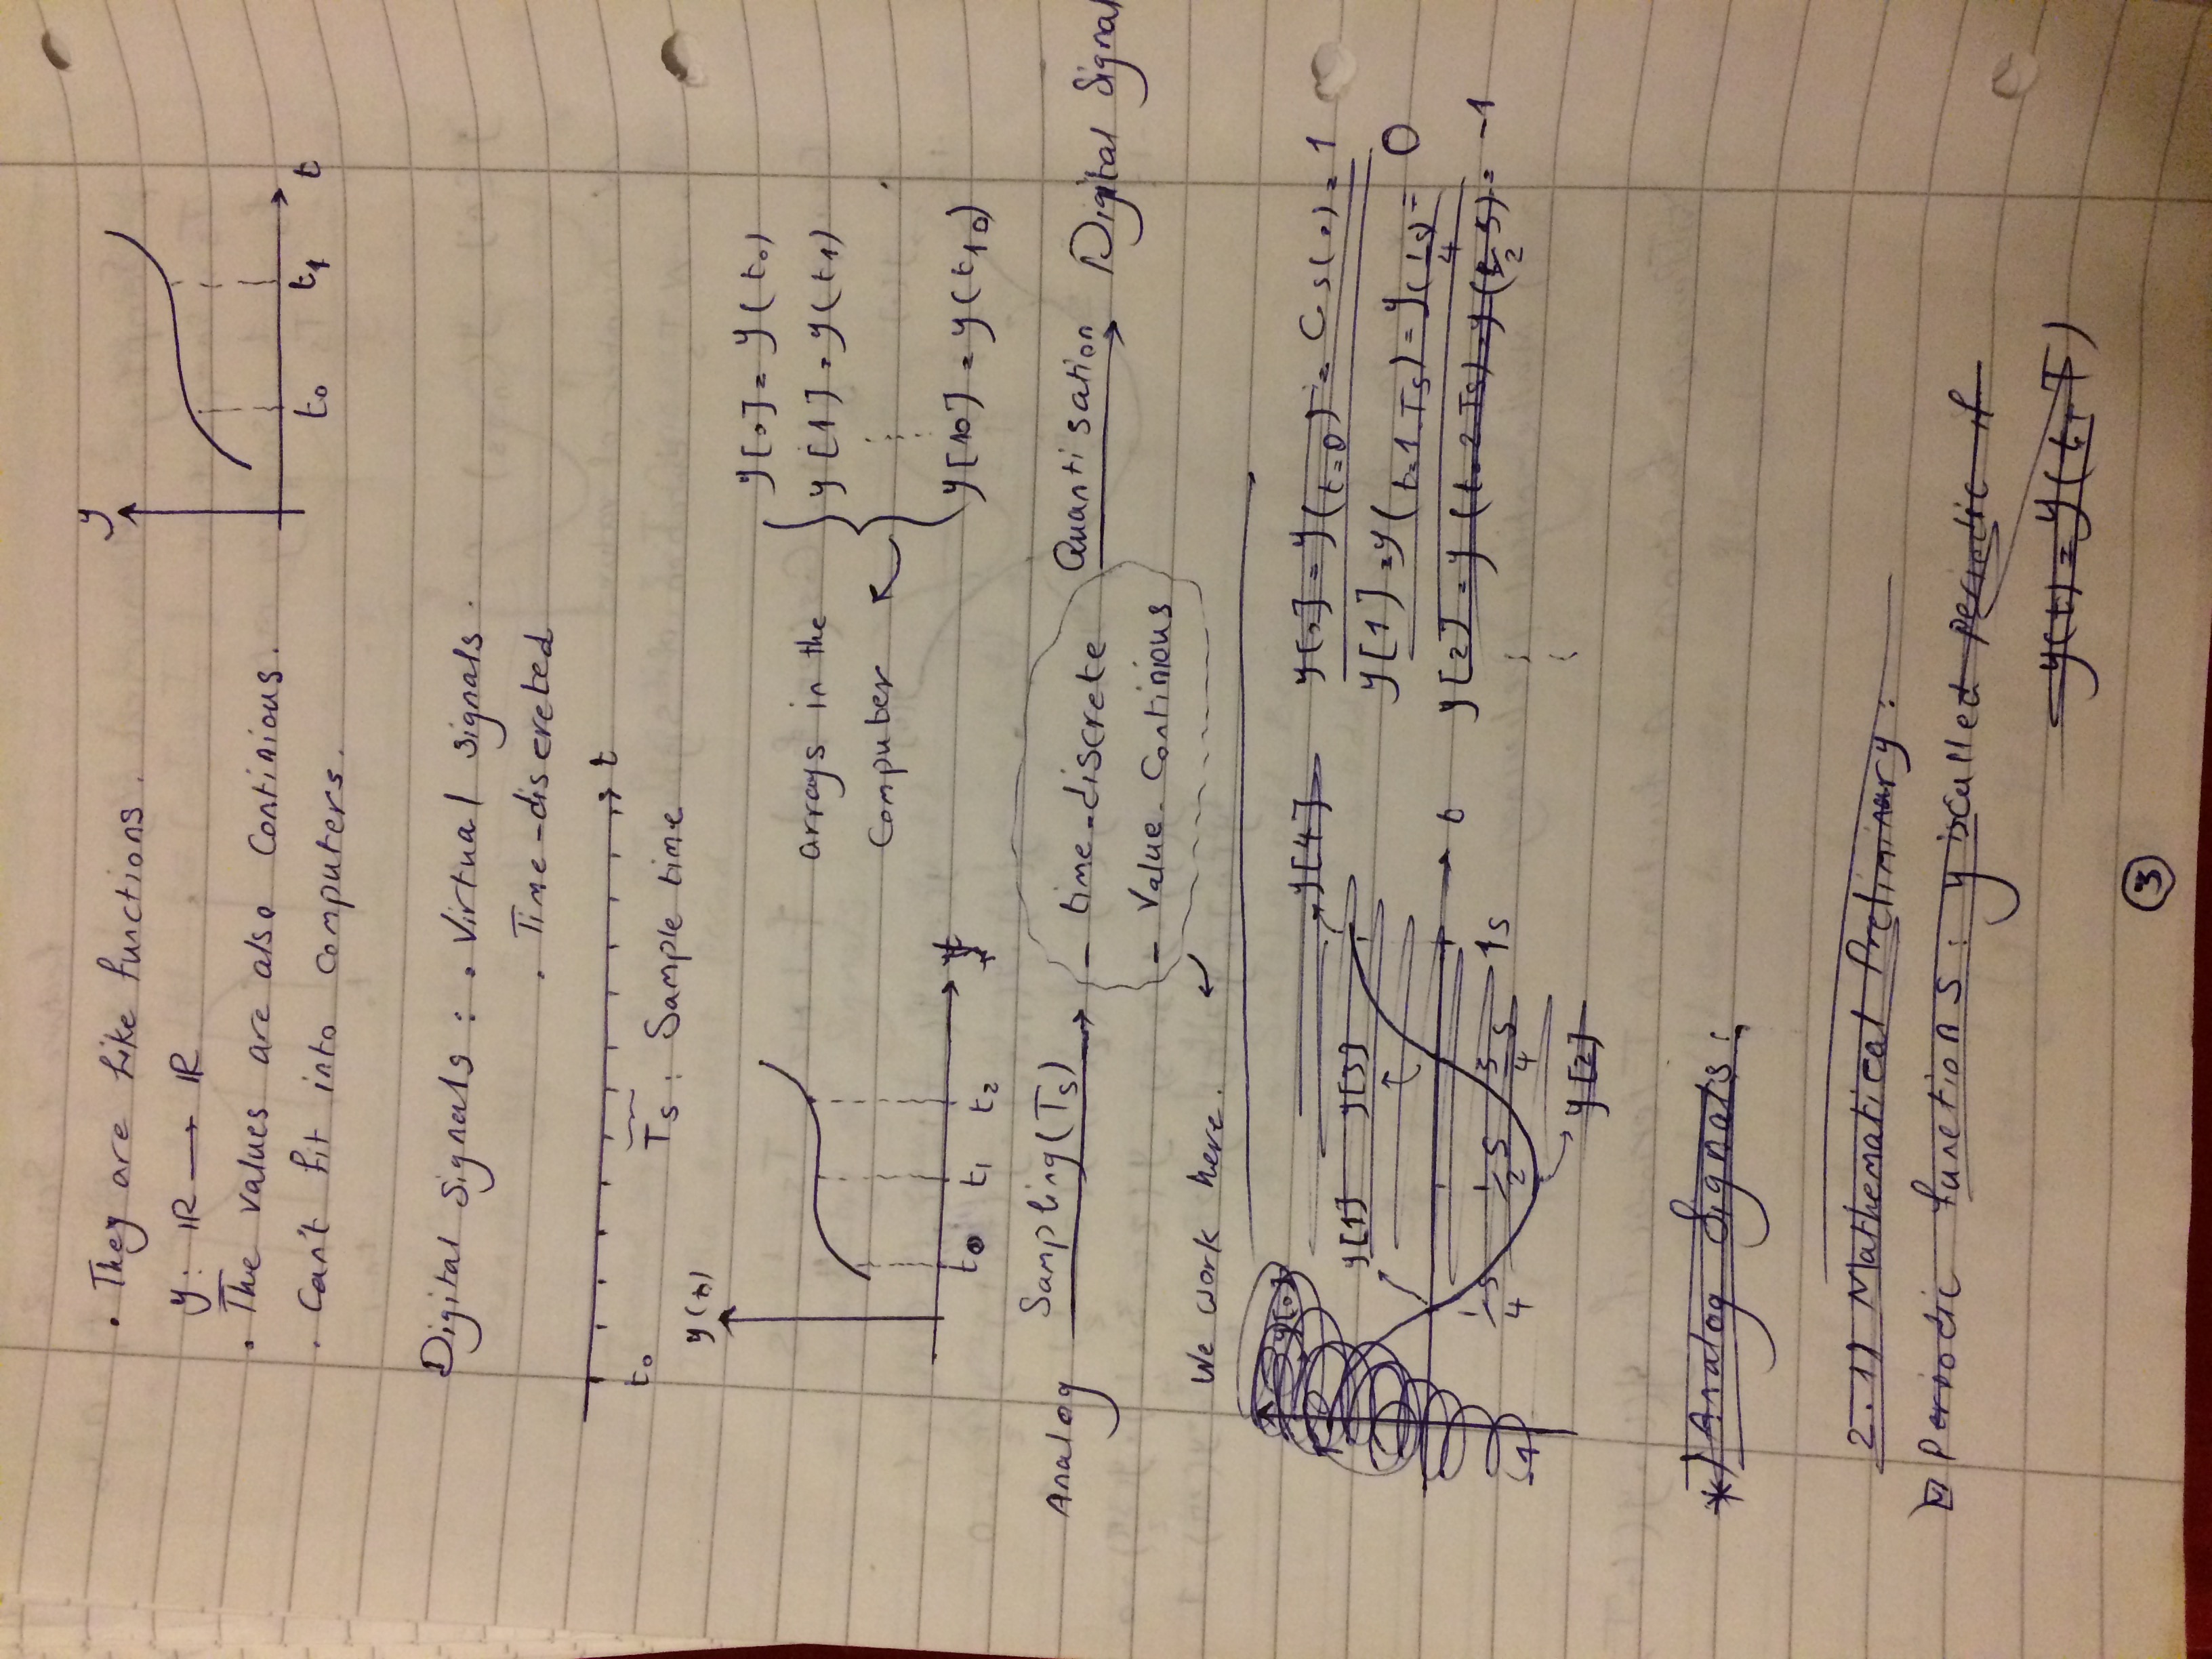 . They are like functions.
y: ℝ → ℝ
. The values are also continious.
. Can't fit into computers.
y
t₀ t₁ t
Digital Signals : . Virtual signals.
. Time-discreted
t
t₀
Ts : Sample time
y(t)
t₀ t₁ t₂
arrays in the
Computer
y[0] = y(t₀)
y[1] = y(t₁)
⋮
y[10] = y(t₁₀)
Analog Sampling(Ts) → - time-discrete Quantisation → Digital Signal
- Value-Continious
We work here.
y[0]
y[1] y[3] y[4]
1/4 s 1/2 s 3/4 s 1s t
-1
y[2]
y[0] = y(t=0) = Cos(0) = 1
y[1] = y(t=1 Ts) = y(1/4 s) = 0
y[2] = y(t=2 Ts) = y(1/2 s) = -1
⋮
*) Analog Signals:
2.1) Mathematical Preliminary:
Periodic functions: y is called periodic if
y(t) = y(t+T)
3